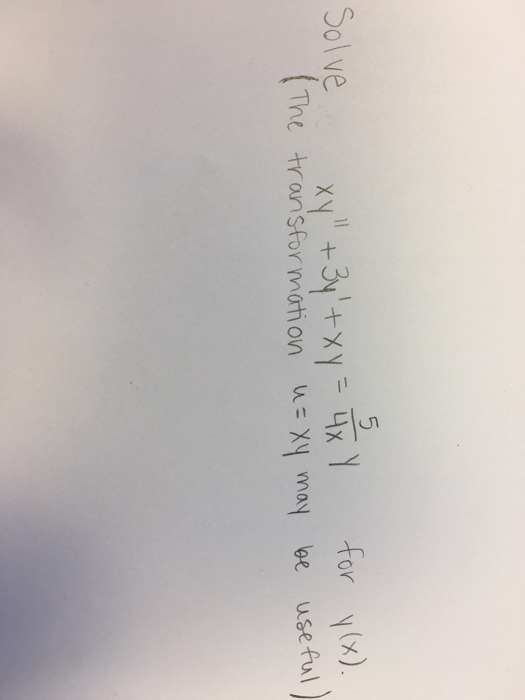 Solve xy" + 3y' + xy = 5/4x y for y(x).
(The transformation u = xy may be useful)